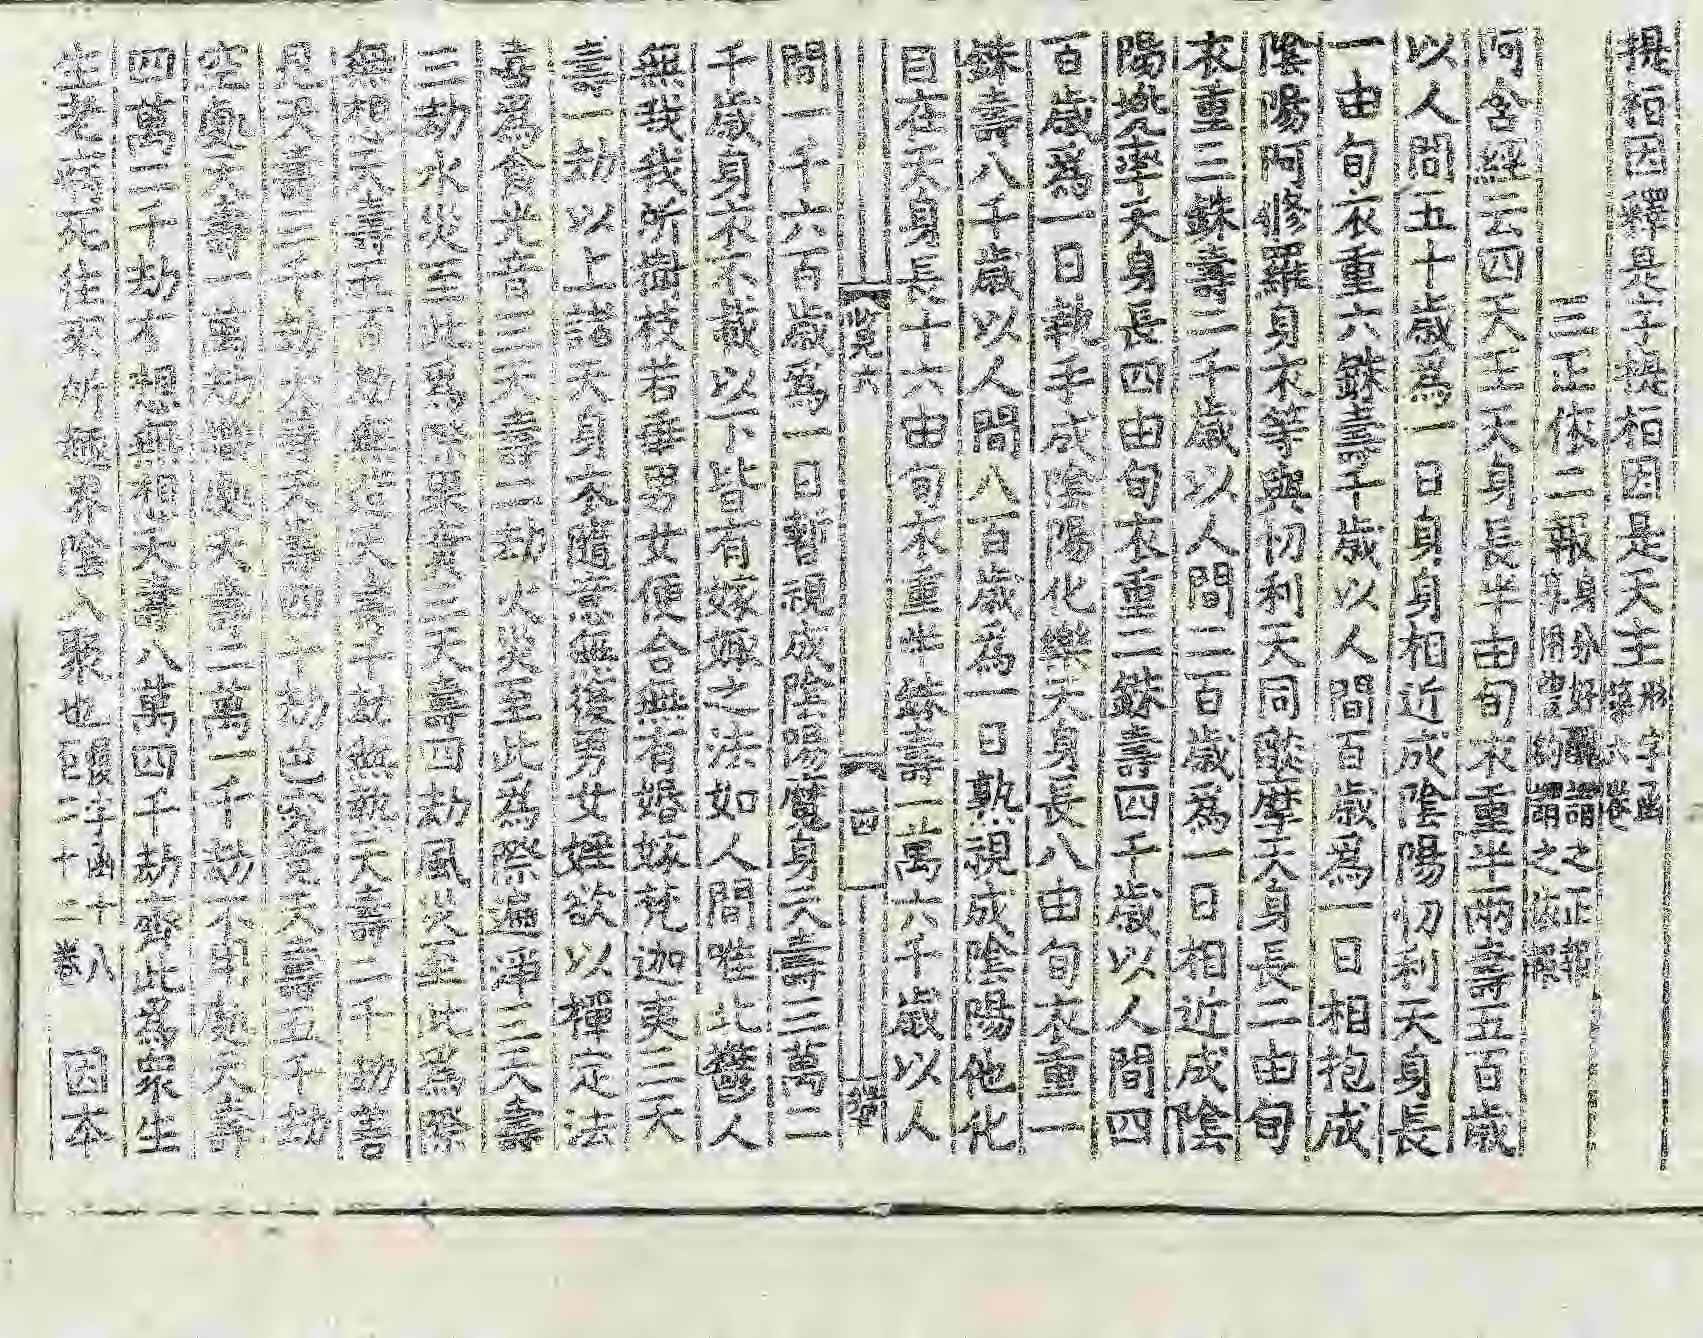 提桓因釋是字提桓因是天主形字函第六卷
三正依二報身分好醜謂之正報身用豐約謂之依報
阿含經云四天王天身長半由旬衣重半兩壽五百歲
以人間五十歲為一日身身相近成陰陽忉利天身長
一由旬衣重六銖壽千歲以人間百歲為一日相抱成
陰陽阿修羅身衣等與忉利天同燄摩天身長二由旬
衣重三銖壽二千歲以人間二百歲為一日相近成陰
陽兜率天身長四由旬衣重二銖壽四千歲以人間四
百歲為一日執手成陰陽化樂天身長八由旬衣重一
銖壽八千歲以人間八百歲為一日熟視成陰陽他化
自在天身長十六由旬衣重半銖壽一萬六千歲以人
四
間一千六百歲為一日暫視成陰陽魔身天壽三萬二
千歲身衣不載以下皆有嫁娶之法如人間唯北鬱人
無我我所樹枝若垂男女便合無有婚嫁梵迦夷三天
壽一劫以上諸天身衣隨意無復男女婬欲以禪定法
喜為食光音三天壽二劫火災至此為際遍淨三天壽
三劫水災至此為際果實三天壽四劫風災至此為際
無想天壽五百劫無造天壽千劫無熱天壽二千劫善
見天壽三千劫大善天壽四千劫色究竟天壽五千劫
空處天壽一萬劫識處天壽二萬一千劫不用處天壽
四萬二千劫有想無想天壽八萬四千劫齊此為眾生
生老病死往來所趣界陰入聚也 因本